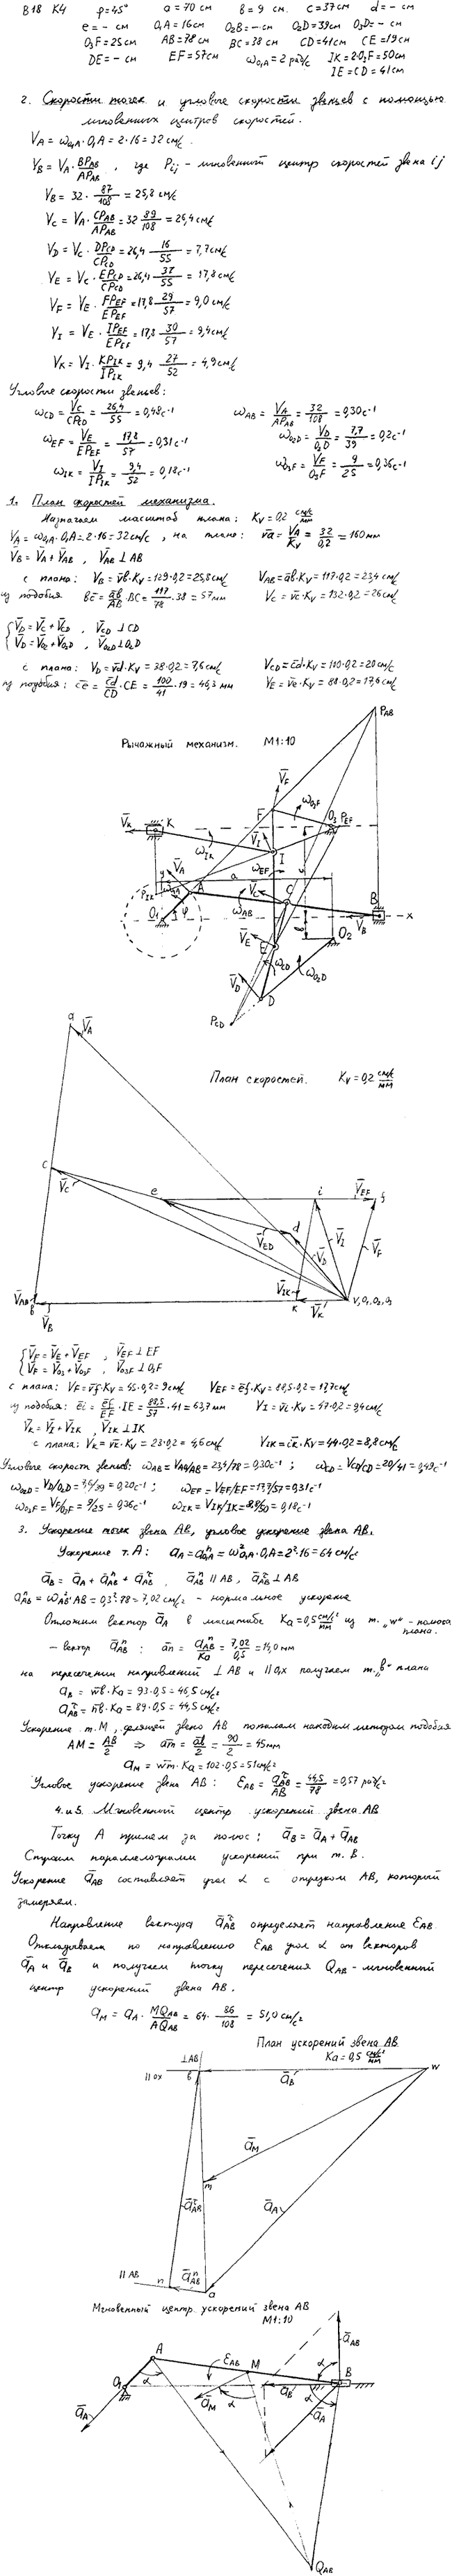 В18 К4 φ=45° a=70 см b=9 см. c=37см d=– см
e=– см O₁A=16см O₂B=– см O₂D=39см O₃D=– см
O₃F=25см AB=78 см BC=38 см CD=41см CE=19см
DE=– см EF=57см ω_O₁A=2 рад/с IK=2·O₃F=50см
IE=CD=41см
2. Скорости точек и угловые скорости звеньев с помощью
мгновенных центров скоростей.
V_A=ω_O₁A·O₁A=2·16=32 см/с
V_B=V_A·BP_AB/AP_AB, где P_ij – мгновенный центр скоростей звена ij
V_B=32·87/108=25,8 см/с
V_C=V_A·CP_AB/AP_AB=32·89/108=26,4см/с
V_D=V_C·DP_CD/CP_CD=26,4·16/55=7,7см/с
V_E=V_C·EP_CD/CP_CD=26,4·37/55=17,8 см/с
V_F=V_E·FP_EF/EP_EF=17,8·29/57=9,0см/с
V_I=V_E·IP_EF/EP_EF=17,8·30/57=9,4см/с
V_K=V_I·KP_IK/IP_IK=9,4·27/52=4,9см/с
Угловые скорости звеньев:
ω_CD=V_C/CP_CD=26,4/55=0,48с⁻¹ ω_AB=V_A/AP_AB=32/108=0,30с⁻¹
ω_EF=V_E/EP_EF=17,8/57=0,31с⁻¹ ω_O₂D=V_D/O₂D=7,7/39=0,2с⁻¹
ω_IK=V_I/IP_IK=9,4/52=0,18с⁻¹ ω_O₃F=V_F/O₃F=9/25=0,36с⁻¹
1. План скоростей механизма.
Назначаем масштаб плана: K_V=0,2 см/с/мм
V_A=ω_O₁A·O₁A=2·16=32см/с, на плане: v̄a=V_A/K_V=32/0,2=160мм
V̄_B=V̄_A+V̄_AB, V̄_AB⊥AB
с плана: V_B=v̄b·K_V=129·0,2=25,8см/с V_AB=āb·K_V=117·0,2=23,4 см/с
из подобия b̄c=āb/AB·BC=117/78·38=57мм V_C=v̄c·K_V=132·0,2=26см/с
V̄_D=V̄_C+V̄_CD, V̄_CD⊥CD
V̄_D=V̄_O₂+V̄_O₂D, V̄_O₂D⊥O₂D
с плана: V_D=v̄d·K_V=38·0,2=7,6см/с V_CD=c̄d·K_V=100·0,2=20см/с
из подобия: c̄e=c̄d/CD·CE=100/41·19=46,3 мм V_E=v̄e·K_V=88·0,2=17,6см/с
Рычажный механизм. М1:10
P_AB
V̄_F
F ω_O₃F
V̄_K K O₃ P_EF
ω_IK V̄_I I
ω_EF
y V̄_A a c
P_IK ω_O₁A A V̄_C C B
O₁ φ ω_AB V̄_B x
V̄_E E O₂
ω_CD ω_O₂D
V̄_D D
P_CD
a V̄_A
План скоростей. K_V=0,2 см/с/мм
c V̄_C e i V̄_EF f
V̄_ED d V̄_D V̄_I V̄_F
V̄_AB b V̄_B V̄_IK k V̄_K v,o₁,o₂,o₃
V̄_F=V̄_E+V̄_EF, V̄_EF⊥EF
V̄_F=V̄_O₃+V̄_O₃F, V̄_O₃F⊥O₃F
с плана: V_F=v̄f·K_V=45·0,2=9см/с V_EF=ēf·K_V=88,5·0,2=17,7см/с
из подобия: ēi=ēf/EF·IE=88,5/57·41=63,7 мм V_I=v̄i·K_V=47·0,2=9,4см/с
V̄_K=V̄_I+V̄_IK, V̄_IK⊥IK
с плана: V_K=v̄к·K_V=23·0,2=4,6см/с V_IK=īк·K_V=44·0,2=8,8см/с
Угловые скорости звеньев: ω_AB=V_AB/AB=23,4/78=0,30с⁻¹; ω_CD=V_CD/CD=20/41=0,49с⁻¹
ω_O₂D=V_D/O₂D=7,6/39=0,20с⁻¹; ω_EF=V_EF/EF=17,7/57=0,31с⁻¹
ω_O₃F=V_F/O₃F=9/25=0,36с⁻¹ ω_IK=V_IK/IK=8,8/50=0,18с⁻¹
3. Ускорение точек звена АВ, угловое ускорение звена АВ.
Ускорение т.А: a_A=aⁿ_O₁A=ω²_O₁A·O₁A=2²·16=64 см/с²
ā_B=ā_A+āⁿ_AB+ā^τ_AB, āⁿ_AB∥AB, ā^τ_AB⊥AB
aⁿ_AB=ω_AB²·AB=0,3²·78=7,02см/с² – нормальное ускорение
Отложим вектор ā_A в масштабе K_a=0,5 см/с²/мм из т. „w“ – полюса
плана.
– вектор āⁿ_AB: ān=aⁿ_AB/K_a=7,02/0,5=14,0мм
на пересечении направлений ⊥АВ и ∥0x получаем т.„b“ плана
a_B=w̄b·K_a=93·0,5=46,5см/с²
a^τ_AB=n̄b·K_a=89·0,5=44,5см/с²
Ускорение т.М, делящей звено АВ пополам находим методом подобия
AM=AB/2 ⇒ ām=āb/2=90/2=45мм
a_M=w̄m·K_a=102·0,5=51см/с²
Угловое ускорение звена АВ: ε_AB=a^τ_AB/AB=44,5/78=0,57 рад/с²
4.и5. Мгновенный центр ускорений звена АВ
Точку А примем за полюс: ā_B=ā_A+ā_AB
Строим параллелограмм ускорений при т. В.
Ускорение ā_AB составляет угол α с отрезком АВ, который
замеряем.
Направление вектора ā^τ_AB определяет направление ε_AB
Откладываем по направлению ε_AB угол α от векторов
ā_A и ā_B и получаем точку пересечения Q_AB–мгновенный
центр ускорений звена АВ.
a_M=a_A·MQ_AB/AQ_AB=64·86/108=51,0см/с²
План ускорений звена АВ
K_a=0,5 см/с²/мм
⊥AB
∥0x b ā_B w
ā_M
m
ā^τ_AB ā_A
∥AB n āⁿ_AB a
Мгновенный центр ускорений звена АВ
М1:10
A ε_AB M α ā_AB
O₁ α ā_B B
ā_A ā_M α α ā_A
Q_AB